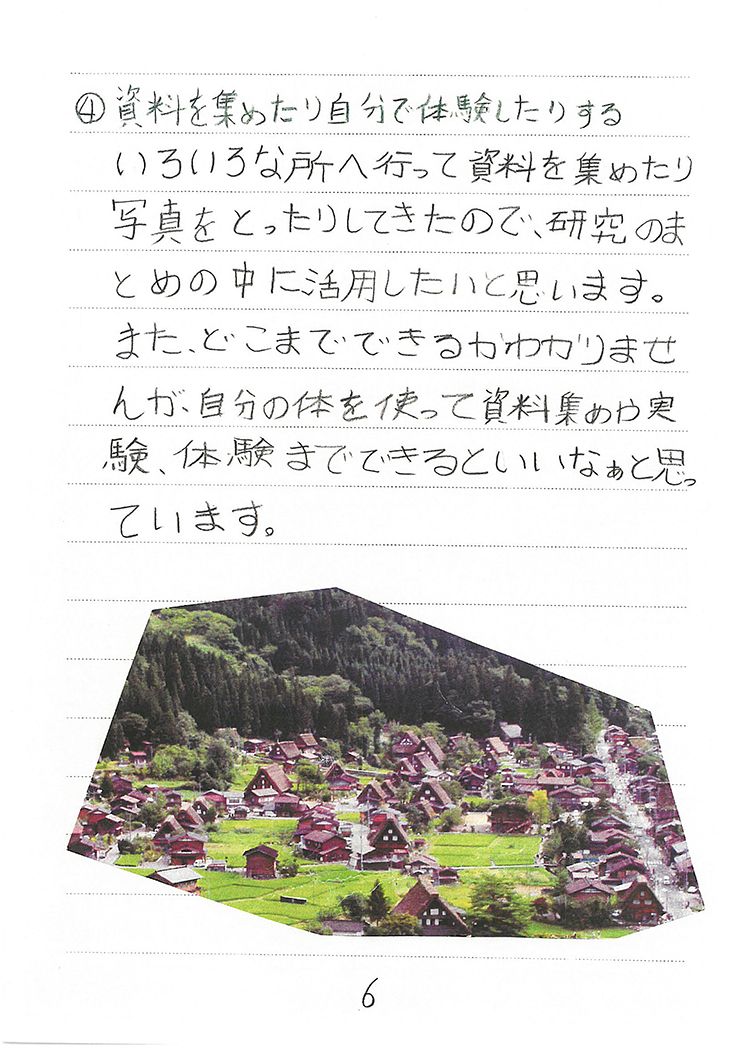 ④資料を集めたり自分で体験したりする
いろいろな所へ行って資料を集めたり
写真をとったりしてきたので、研究のま
とめの中に活用したいと思います。
また、どこまでできるかわかりませ
んが、自分の体を使って資料集めや実
験、体験までできるといいなぁと思っ
ています。
6